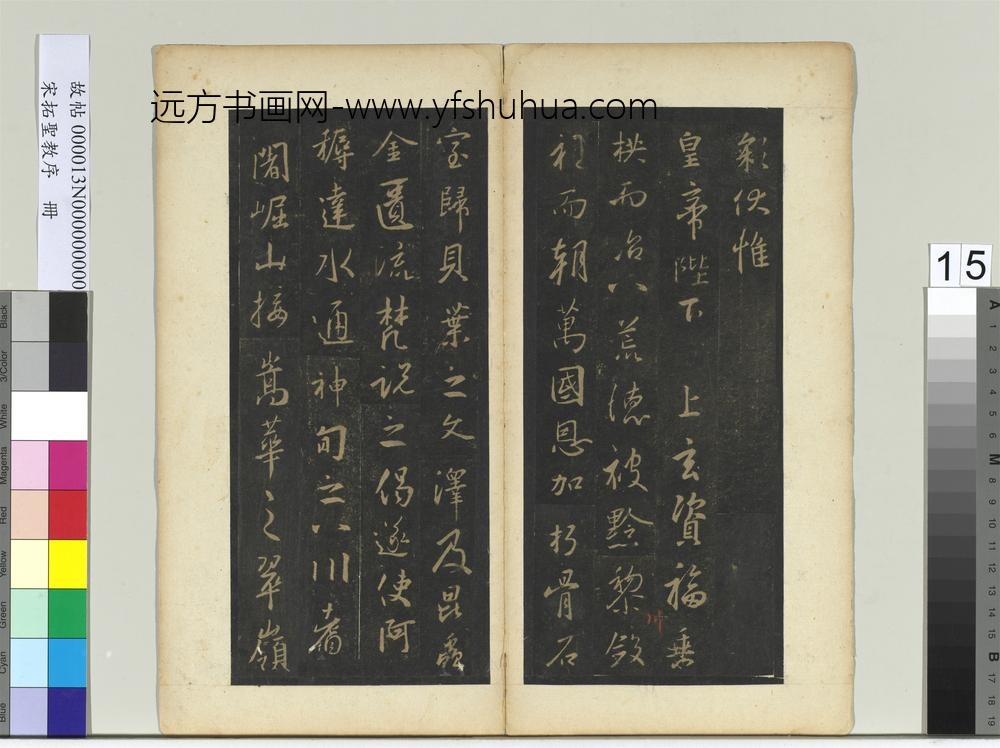 彩伏惟
皇帝陛下上玄資福垂
拱而治八荒德被黔黎斂
衽而朝萬國恩加朽骨石
室歸貝葉之文澤及昆蟲
金匱流梵說之偈遂使阿
耨達水通神甸之八川耆
闍崛山接嵩華之翠嶺
远方书画网-www.yfshuhua.com
故帖000013N000000000
宋拓聖教序 冊
15
Black
3/Color
White
Magenta
Red
Yellow
Green
Cyan
Blue
A
1
2
3
4
5
6
M
8
9
10
11
12
13
14
15
B
17
18
19